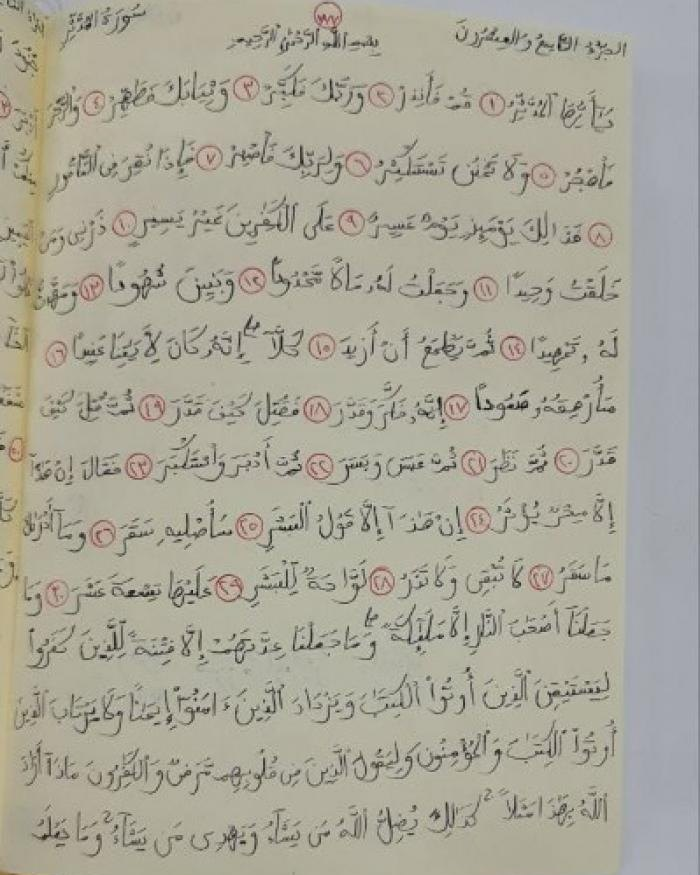 الجزء التاسع والعشرون بسم الله الرحمن الرحيم سورة المدثر
يَٰٓأَيُّهَا ٱلْمُدَّثِّرُ ١ قُمْ فَأَنذِرْ ٢ وَرَبَّكَ فَكَبِّرْ ٣ وَثِيَابَكَ فَطَهِّرْ ٤ وَٱلرُّجْزَ
فَٱهْجُرْ ٥ وَلَا تَمْنُن تَسْتَكْثِرُ ٦ وَلِرَبِّكَ فَٱصْبِرْ ٧ فَإِذَا نُقِرَ فِى ٱلنَّاقُورِ
٨ فَذَٰلِكَ يَوْمَئِذٍ يَوْمٌ عَسِيرٌ ٩ عَلَى ٱلْكَٰفِرِينَ غَيْرُ يَسِيرٍ ١٠ ذَرْنِى وَمَنْ
خَلَقْتُ وَحِيدًا ١١ وَجَعَلْتُ لَهُۥ مَالًا مَّمْدُودًا ١٢ وَبَنِينَ شُهُودًا ١٣ وَمَهَّدتُّ
لَهُۥ تَمْهِيدًا ١٤ ثُمَّ يَطْمَعُ أَنْ أَزِيدَ ١٥ كَلَّآ ۖ إِنَّهُۥ كَانَ لِأَيَٰتِنَا عَنِيدًا ١٦
سَأُرْهِقُهُۥ صَعُودًا ١٧ إِنَّهُۥ فَكَّرَ وَقَدَّرَ ١٨ فَقُتِلَ كَيْفَ قَدَّرَ ١٩ ثُمَّ قُتِلَ كَيْفَ
قَدَّرَ ٢٠ ثُمَّ نَظَرَ ٢١ ثُمَّ عَبَسَ وَبَسَرَ ٢٢ ثُمَّ أَدْبَرَ وَٱسْتَكْبَرَ ٢٣ فَقَالَ إِنْ هَٰذَآ
إِلَّا سِحْرٌ يُؤْثَرُ ٢٤ إِنْ هَٰذَآ إِلَّا قَوْلُ ٱلْبَشَرِ ٢٥ سَأُصْلِيهِ سَقَرَ ٢٦ وَمَآ أَدْرَىٰكَ
مَا سَقَرُ ٢٧ لَا تُبْقِى وَلَا تَذَرُ ٢٨ لَوَّاحَةٌ لِّلْبَشَرِ ٢٩ عَلَيْهَا تِسْعَةَ عَشَرَ ٣٠ وَمَا
جَعَلْنَآ أَصْحَٰبَ ٱلنَّارِ إِلَّا مَلَٰٓئِكَةً ۖ وَمَا جَعَلْنَا عِدَّتَهُمْ إِلَّا فِتْنَةً لِّلَّذِينَ كَفَرُوا۟
لِيَسْتَيْقِنَ ٱلَّذِينَ أُوتُوا۟ ٱلْكِتَٰبَ وَيَزْدَادَ ٱلَّذِينَ ءَامَنُوٓا۟ إِيمَٰنًا وَلَا يَرْتَابَ ٱلَّذِينَ
أُوتُوا۟ ٱلْكِتَٰبَ وَٱلْمُؤْمِنُونَ وَلِيَقُولَ ٱلَّذِينَ فِى قُلُوبِهِم مَّرَضٌ وَٱلْكَٰفِرُونَ مَاذَآ أَرَادَ
ٱللَّهُ بِهَٰذَا مَثَلًا ۚ كَذَٰلِكَ يُضِلُّ ٱللَّهُ مَن يَشَآءُ وَيَهْدِى مَن يَشَآءُ ۚ وَمَا يَعْلَمُ